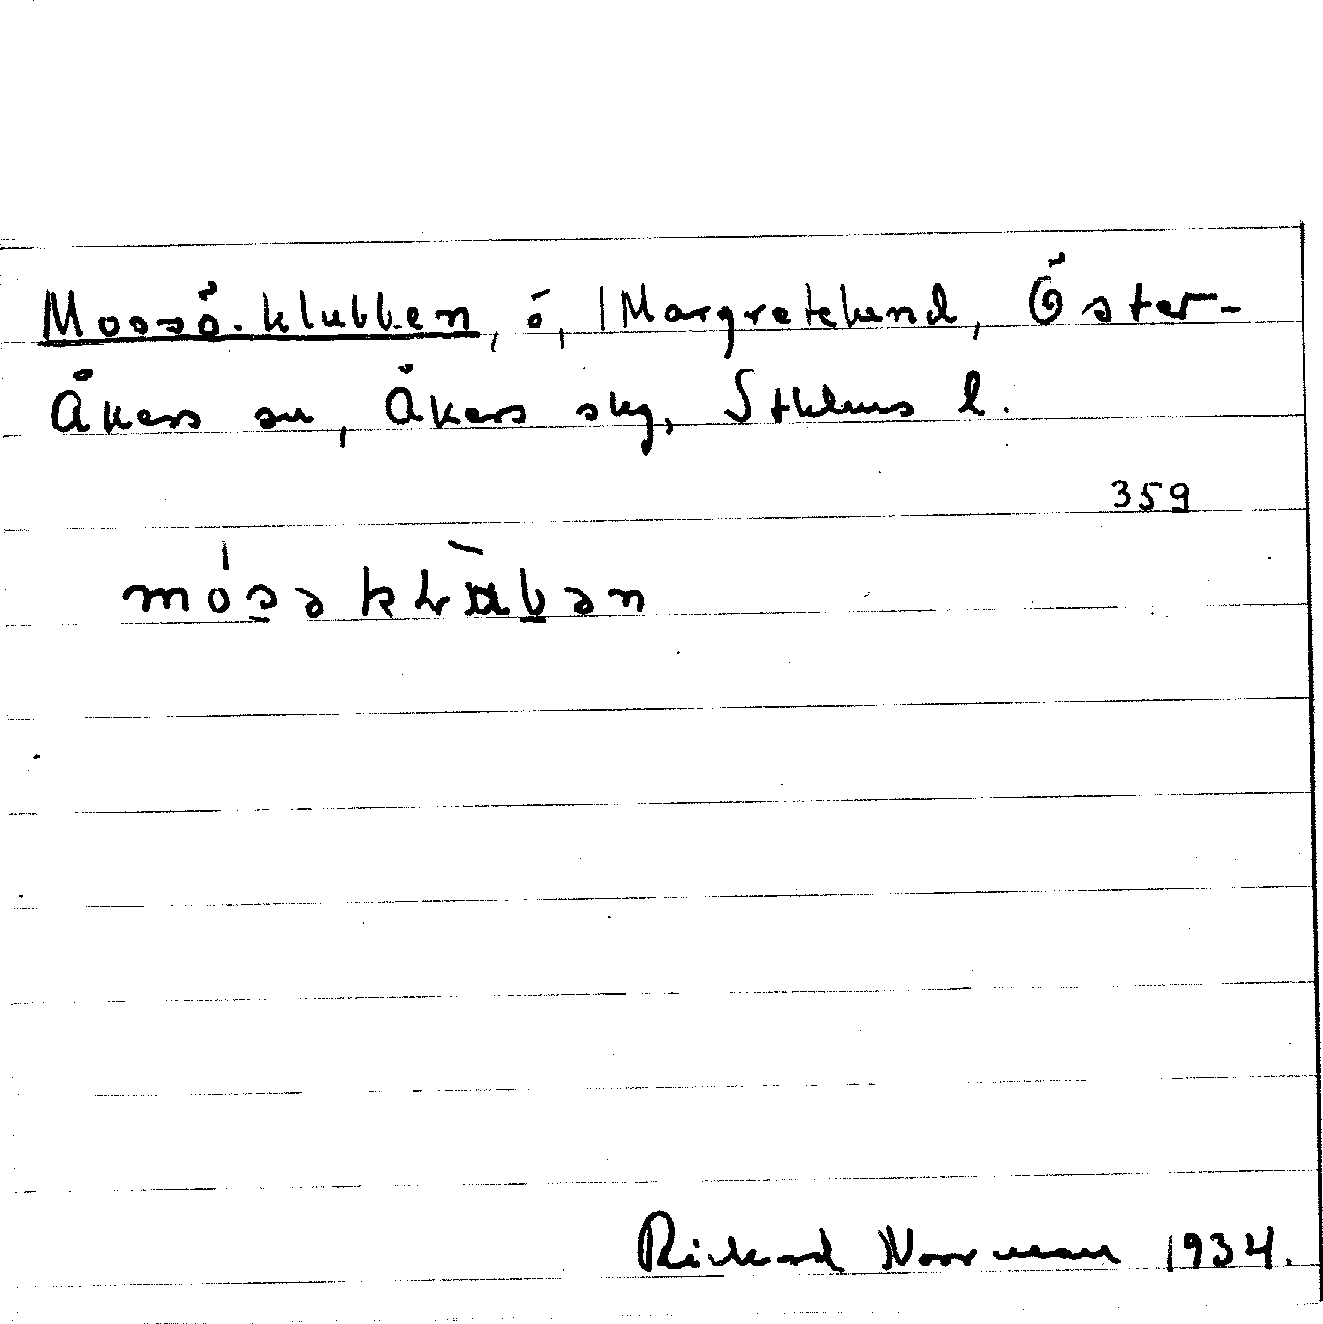 Mossö-klubben, ö, Margretelund, Öster-
Åkers sn, Åkers skg, Sthlms l.
359
mósə klùbən
Rickard Norrman 1934.